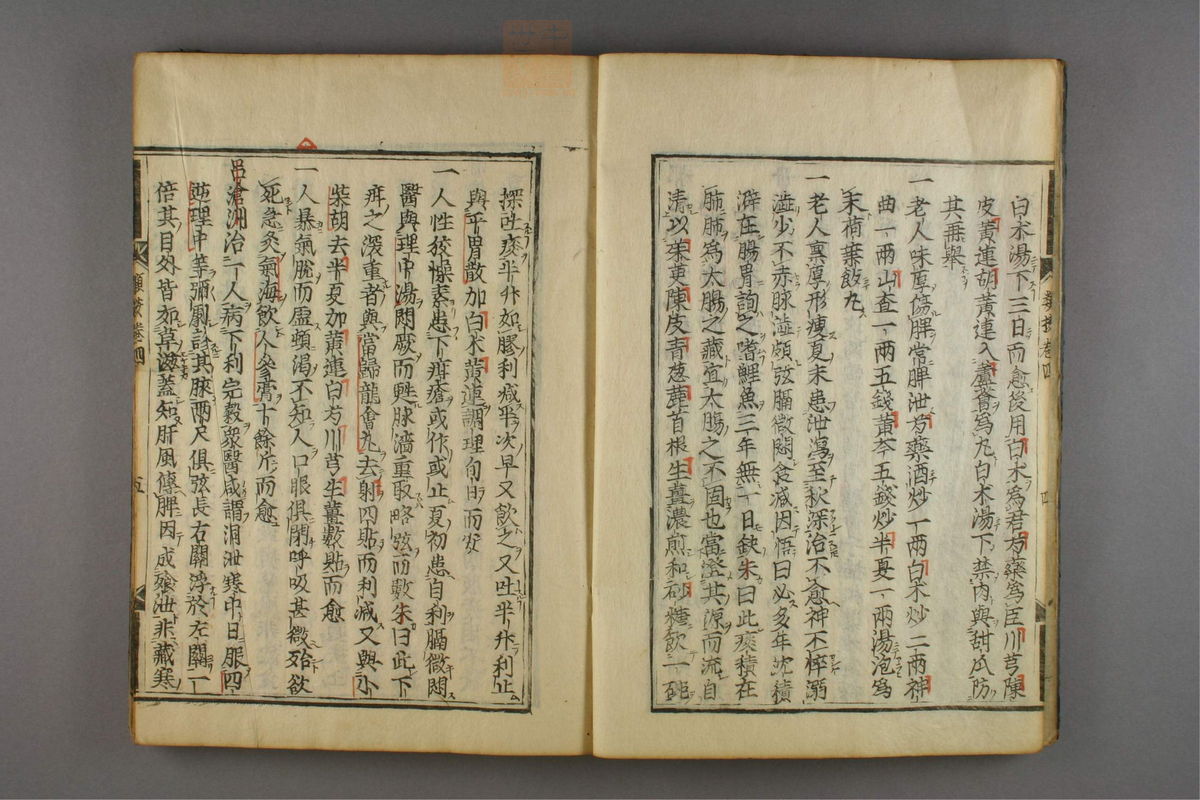 白朮湯下三日而愈後用白朮為君芍藥為臣川芎陳
皮黃連胡黃連入蘆薈為丸白朮湯下禁肉與甜瓜防
其再舉
一老人味厚傷脾常脾泄芍藥酒炒一兩白朮炒二兩神
曲一兩山查一兩五錢黃芩五錢炒半夏一兩湯泡為
末荷葉飯丸
一老人稟厚形瘦夏末患泄瀉至秋深治不愈神不悴溺
澁少不赤脉澁頗弦膈微悶食減因悟曰必多年沈積
澼在腸胃詢之嗜鯉魚三年無一日缺朱曰此痰積在
肺肺為大腸之藏宜大腸之不固也當澄其源而流自
清以茱萸陳皮青葱蔍首根生薑濃煎和砂糖飲一碗
探吐痰半升如膠利減半次早又飲之又吐半升利止
與平胃散加白朮黃連調理旬日而安
一人性狡懆素患下疳瘡或作或止夏初患自利膈微悶
醫與理中湯悶厥而甦脉濇重取略弦而數朱曰此下
疳之深重者與當歸龍會丸去射四貼而利減又與小
柴胡去半夏加黃連白芍川芎生薑數貼而愈
一人暴氣脫而虛頓瀉不知人口眼俱閉呼吸甚微殆欲
死急灸氣海飲人參膏十餘斤而愈
呂滄洲治一人病下利完穀衆醫咸謂洞泄寒中日服四
逆理中等彌劇診其脉兩尺俱弦長右關浮於左關一
倍其目外眥如草滋蓋知肝風傳脾因成飱泄非藏寒
類案卷四
五
四